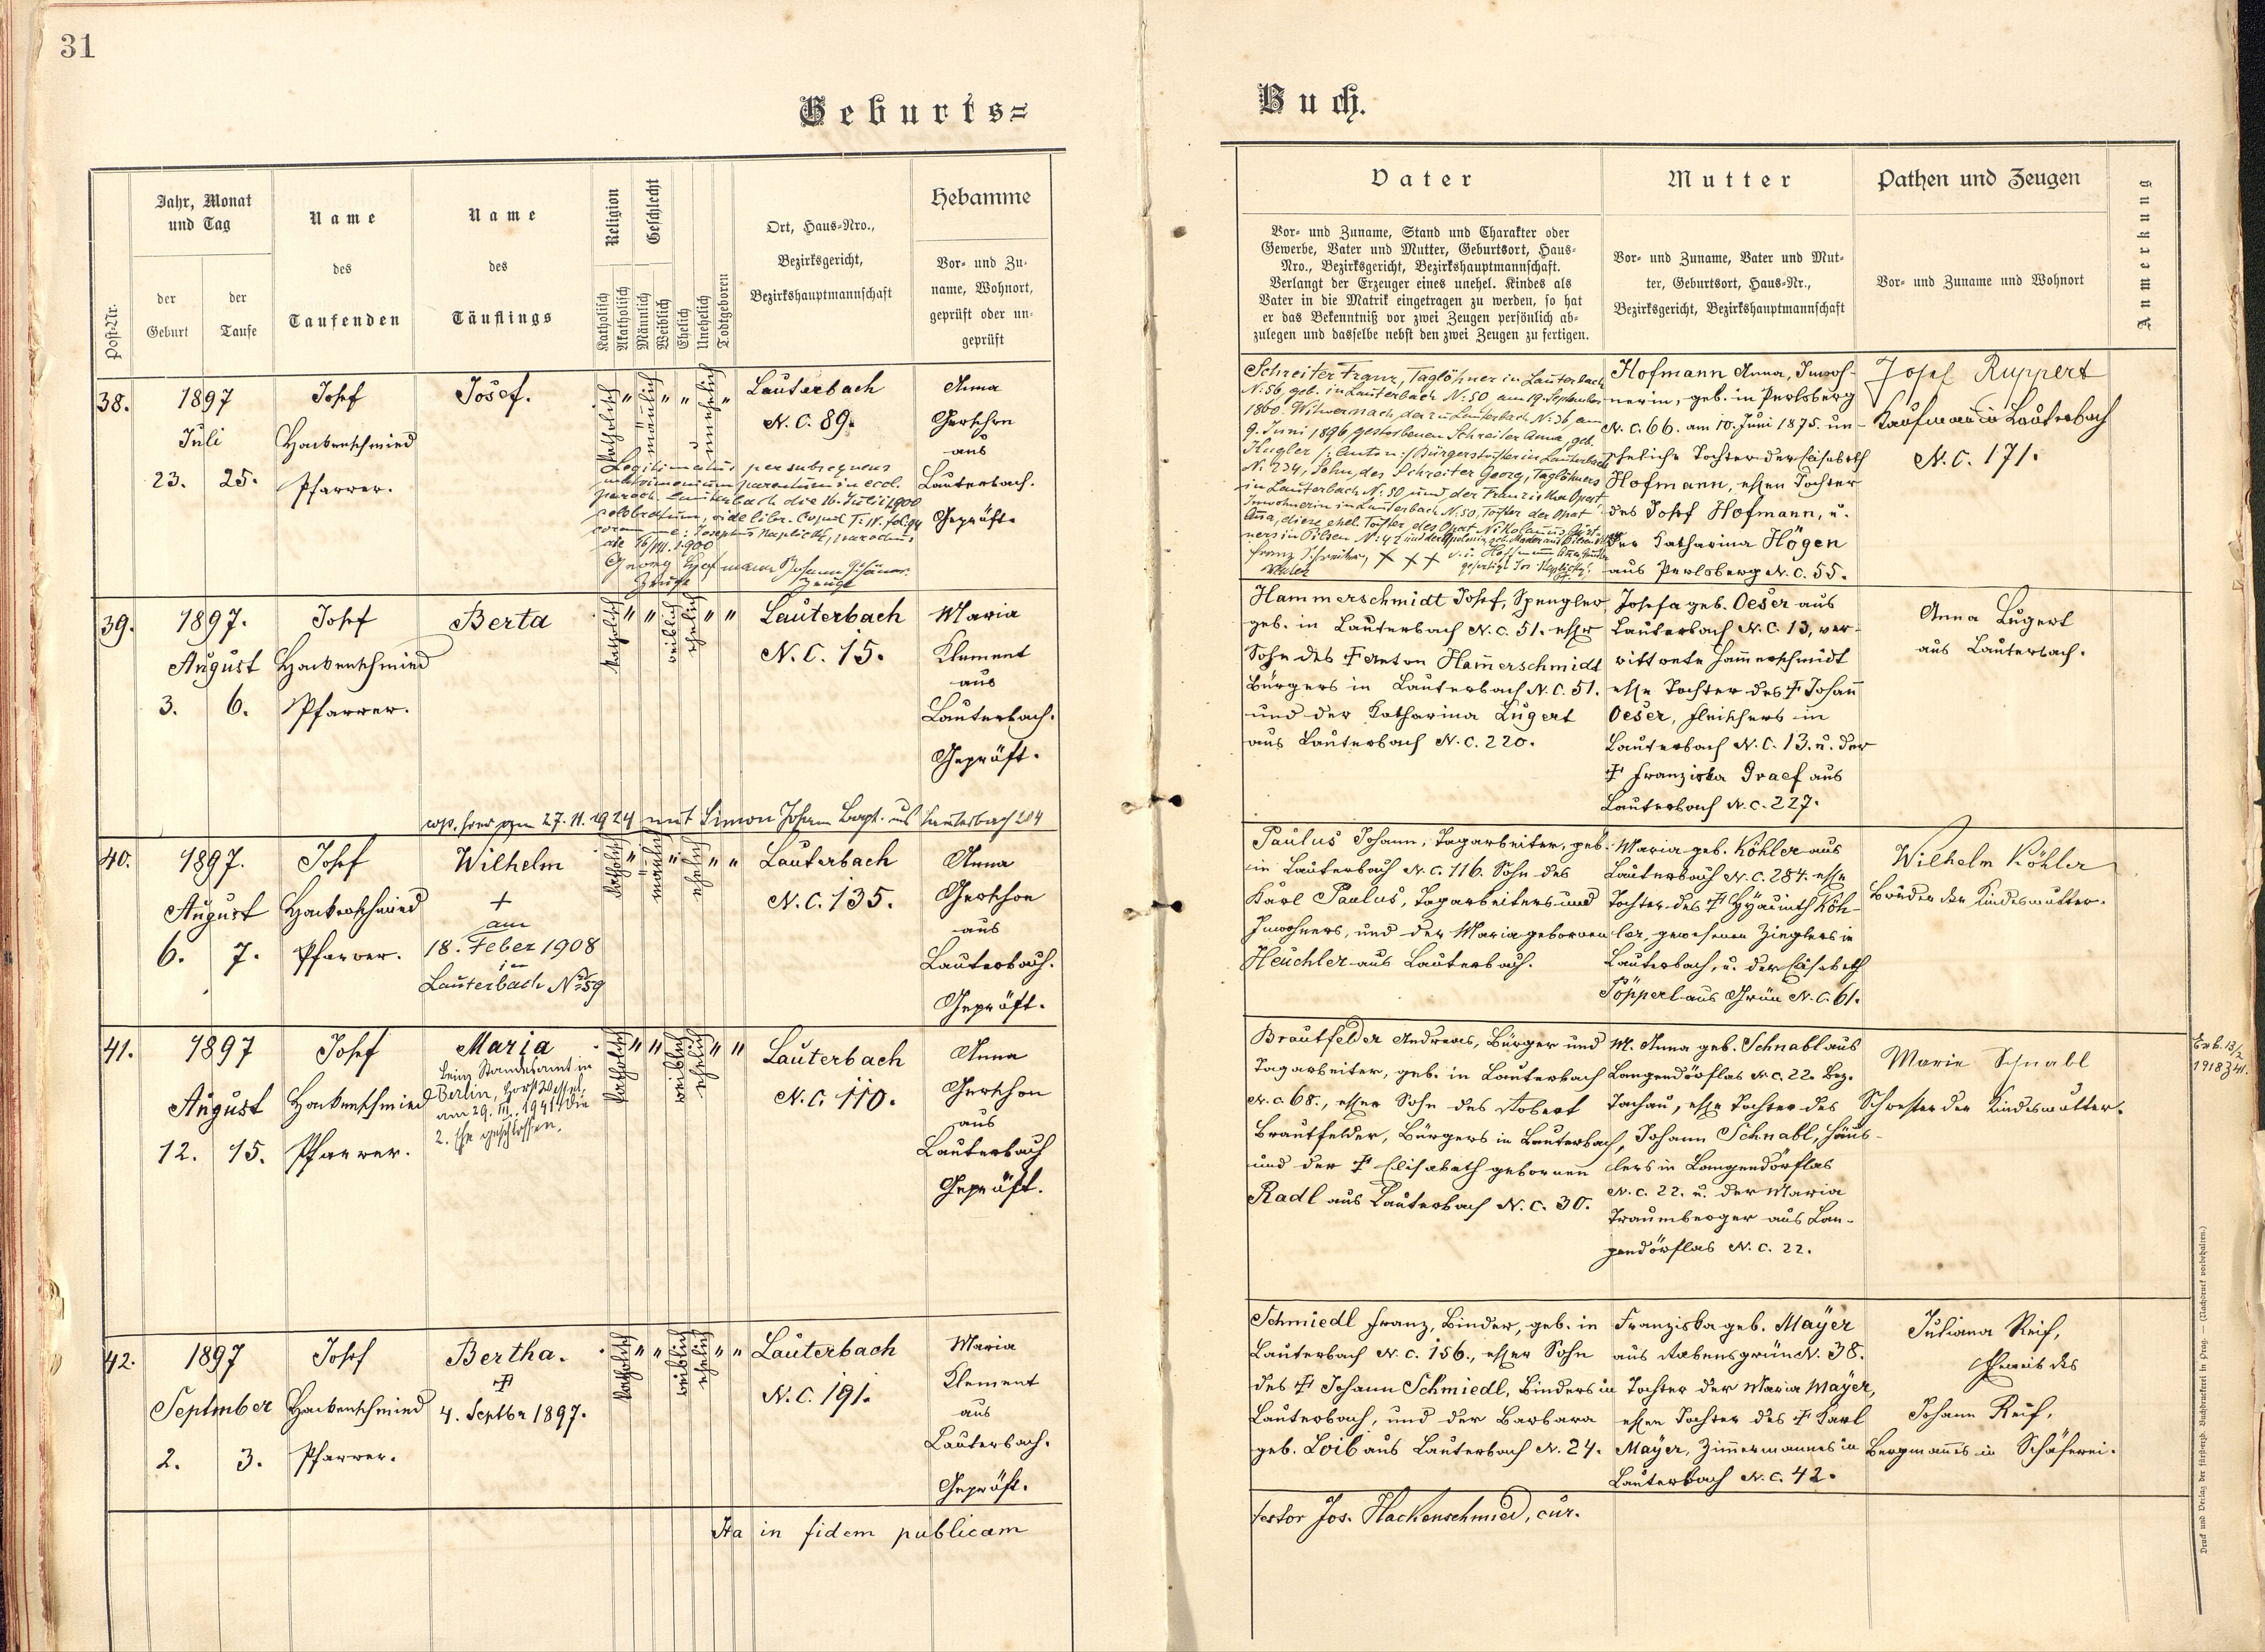 31
Geburts=
Buch.
Post-Nr.
Jahr, Monat
und Tag
der
Geburt
der
Taufe
Name
des
Taufenden
Name
des
Täuflings
Religion
Geschlecht
Katholisch
Akatholisch
Männlich
Weiblich
Ehelich
Unehelich
Todtgeboren
Ort, Haus-Nro.,
Bezirksgericht,
Bezirkshauptmannschaft
Hebamme
Vor- und Zu-
name, Wohnort,
geprüft oder un-
geprüft
Vater
Vor- und Zuname, Stand und Charakter oder
Gewerbe, Vater und Mutter, Geburtsort, Haus-
Nro., Bezirksgericht, Bezirkshauptmannschaft.
Verlangt der Erzeuger eines unehel. Kindes als
Vater in die Matrik eingetragen zu werden, so hat
er das Bekenntniß vor zwei Zeugen persönlich ab-
zulegen und dasselbe nebst den zwei Zeugen zu fertigen.
Mutter
Vor- und Zuname, Vater und Mut-
ter, Geburtsort, Haus-Nr.,
Bezirksgericht, Bezirkshauptmannschaft
Pathen und Zeugen
Vor- und Zuname und Wohnort
Anmerkung
38.
1897
Juli
23. 25.
Josef
Hackenschmied
Pfarrer.
Josef.
katholisch " mäńlich " " unehelich "
Lauterbach
N. C. 89.
Anna
Gerschon
aus
Lauterbach.
Geprüft.
Legitimatus per subsequens
matrimonium parentum in eccl.
paroch. Lauterbach die 16. Julii 1900
celebratum, vide libr. Copul. T. IV. fol. 94
coram me: Josephus Keplicht, parochus
die 16/VII. 1900
Georg Hofmann
Zeuge
Johann
Zeuge
Schreiter Franz, Taglöhner in Lauterbach
N. 56, geb. in Lauterbach N. 50 am 19. September
1860. Witwer nach der zu Lauterbach N. 36, am
9. Juni 1896 gestorbenen Schreiter Anna, geb.
Kugler /: Anton :/ Bürgerstochter in Lauterbach
N. 234, Sohn des Schreiter Georg, Taglöhners
in Lauterbach N. 50 und der Franziska Opat,
Inwohnerin in Lauterbach N. 50, Tochter der Opat
Ana, diese ehel. Tochter des Opat Nikolaus
ners in Pilsen N. 41
Franz Schreiter, + + +
Vater
Hofmann Anna, Inwoh-
nerin, geb. in Perlsberg
N. C. 66. am 10. Juni 1875. un-
eheliche Tochter der Elisabeth
Hofmann, ehen Tochter
des Josef Hofmann, u.
der Katharina Högen
aus Perlsberg N. C. 55.
Josef Ruppert
Kaufmann in Lauterbach
N. C. 171.
39.
1897.
August
3. 6.
Josef
Hackenschmied
Pfarrer.
Berta
katholisch " " weiblich ehelich " "
Lauterbach
N. C. 15.
Maria
Klement
aus
Lauterbach.
Geprüft.
cop. hier am 27. 11. 1924 mit Simon Johann Bapt. aus Lauterbach 204
Hammerschmidt Josef, Spengler,
geb. in Lauterbach N. C. 51. eher
Sohn des † Anton Hamerschmidt
Bürgers in Lauterbach N. C. 51.
und der Katharina Lugert
aus Lauterbach N. C. 220.
Josefa geb. Oeser aus
Lauterbach N. C. 13, ver-
wittwete Hamerschmidt
ehe Tochter des † Johann
Oeser, Fleischers in
Lauterbach N. C. 13. u. der
† Franziska Graef aus
Lauterbach N. C. 227.
Anna Lugert
aus Lauterbach.
40.
1897.
August
6. 7.
Josef
Hackenschmied
Pfarrer.
Wilhelm
+
am
18. Feber 1908
in
Lauterbach No 59
katholisch " mänlich " ehelich " "
Lauterbach
N. C. 135.
Anna
Gerschon
aus
Lauterbach.
Geprüft.
Paulus Johann, Tagarbeiter, geb.
in Lauterbach N. C. 116. Sohn des
Karl Paulus, Tagarbeiters und
Inwohners, und der Maria gebornen
Heuchler aus Lauterbach.
Maria geb. Köhler aus
Lauterbach N. C. 284. ehe
Tochter des † Hyäcinth Köh-
ler, gewesenen Zieglers in
Lauterbach, u. der Elisabeth
Töpperl aus Grün N. C. 61.
Wilhelm Köhler
Bruder der Kindesmutter.
41.
1897
August
12. 15.
Josef
Hackenschmied
Pfarrer.
Maria
beim Standesamt in
Berlin, Horst Wessel,
am 29. III. 1941 die
2. Ehe geschlossen.
katholisch " " weiblich ehelich " "
Lauterbach
N. C. 110.
Anna
Gerschon
aus
Lauterbach
Geprüft.
Brautfelder Andreas, Bürger und
Tagarbeiter, geb. in Lauterbach
N. C. 68., eher Sohn des Robert
Brautfelder, Bürgers in Lauterbach,
und der † Elisabeth gebornen
Radl aus Lauterbach N. C. 30.
M. Anna geb. Schnabl aus
Langendörflas N. C. 22. Bez.
Tachau, ehe Tochter des
Johann Schnabl, Häus-
lers in Langendörflas
N. C. 22. u. der Maria
Traumberger aus Lan-
gendörflas N. C. 22.
Marie Schnabl
Schwester der Kindesmutter.
42.
1897
September
2. 3.
Josef
Hackenschmied
Pfarrer.
Bertha.
†
4. Septbr 1897.
katholisch " " weiblich ehelich " "
Lauterbach
N. C. 191.
Maria
Klement
aus
Lauterbach.
Geprüft.
Schmiedl Franz, Binder, geb. in
Lauterbach N. C. 156., eher Sohn
des † Johann Schmiedl, Binders in
Lauterbach, und der Barbara
geb. Loib aus Lauterbach N. 24.
Franziska geb. Mayer
aus Rabensgrün N. 38.
Tochter der Maria Mayer,
ehen Tochter des † Karl
Mayer, Zimermannes in
Lauterbach N. C. 42.
Juliana Reif,
Eheweib des
Johann Reif,
Bergmannes in Schäferei.
Ita in fidem publicam
testor Jos. Hackenschmied, cur.
Druck und Verlag der fürsterzb. Buchdruckerei in Prag. — (Nachdruck vorbehalten.)